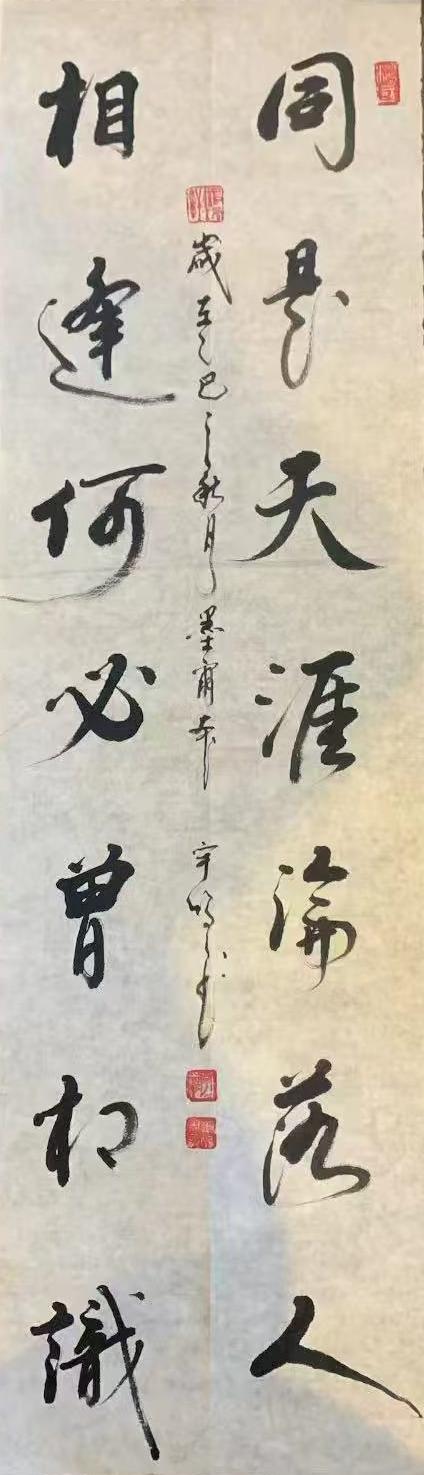 同是天涯淪落人
相逢何必曾相識
歲在乙巳之秋月